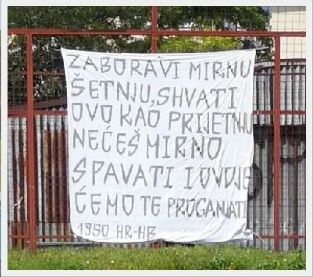 ZABORAVI MIRNU
ŠETNJU, SHVATI
OVO KAO PRIJETNJU
NEĆEŠ MIRNO
SPAVATI I OVDJE
ĆEMO TE PROGANJATI
1950. HR-HB